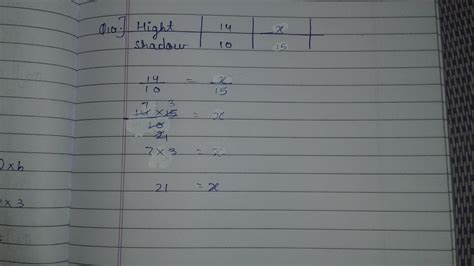 Q10:] Hight 14 x
Shadow 10 15
14/10 = x/15
7 3
14 x 15 = x
10
2 1
7 x 3 = x
21 = x
x h
x 3